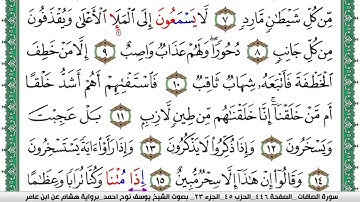 مِّن كُلِّ شَيْطَٰنٍ مَّارِدٍ ٧ لَّا يَسْمَعُونَ إِلَى ٱلْمَلَإِ ٱلْأَعْلَىٰ وَيُقْذَفُونَ
مِن كُلِّ جَانِبٍ ٨ دُحُورًا وَلَهُمْ عَذَابٌ وَاصِبٌ ٩ إِلَّا مَنْ خَطِفَ
ٱلْخَطْفَةَ فَأَتْبَعَهُۥ شِهَابٌ ثَاقِبٌ ١٠ فَٱسْتَفْتِهِمْ أَهُمْ أَشَدُّ خَلْقًا
أَم مَّنْ خَلَقْنَآ إِنَّا خَلَقْنَٰهُم مِّن طِينٍ لَّازِبٍ ١١ بَلْ عَجِبْتَ
وَيَسْخَرُونَ ١٢ وَإِذَا ذُكِّرُوا۟ لَا يَذْكُرُونَ ١٣ وَإِذَا رَأَوْا۟ ءَايَةً يَسْتَسْخِرُونَ
١٤ وَقَالُوٓا۟ إِنْ هَٰذَآ إِلَّا سِحْرٌ مُّبِينٌ ١٥ إِذَا مُتْنَا وَكُنَّا تُرَابًا وَعِظَٰمًا
سورة الصافات _ الصفحة ٤٤٦ _ الحزب ٤٥ _ الجزء ٢٣ _ بصوت الشيخ يوسف نوح احمد _ برواية هشام عن ابن عامر